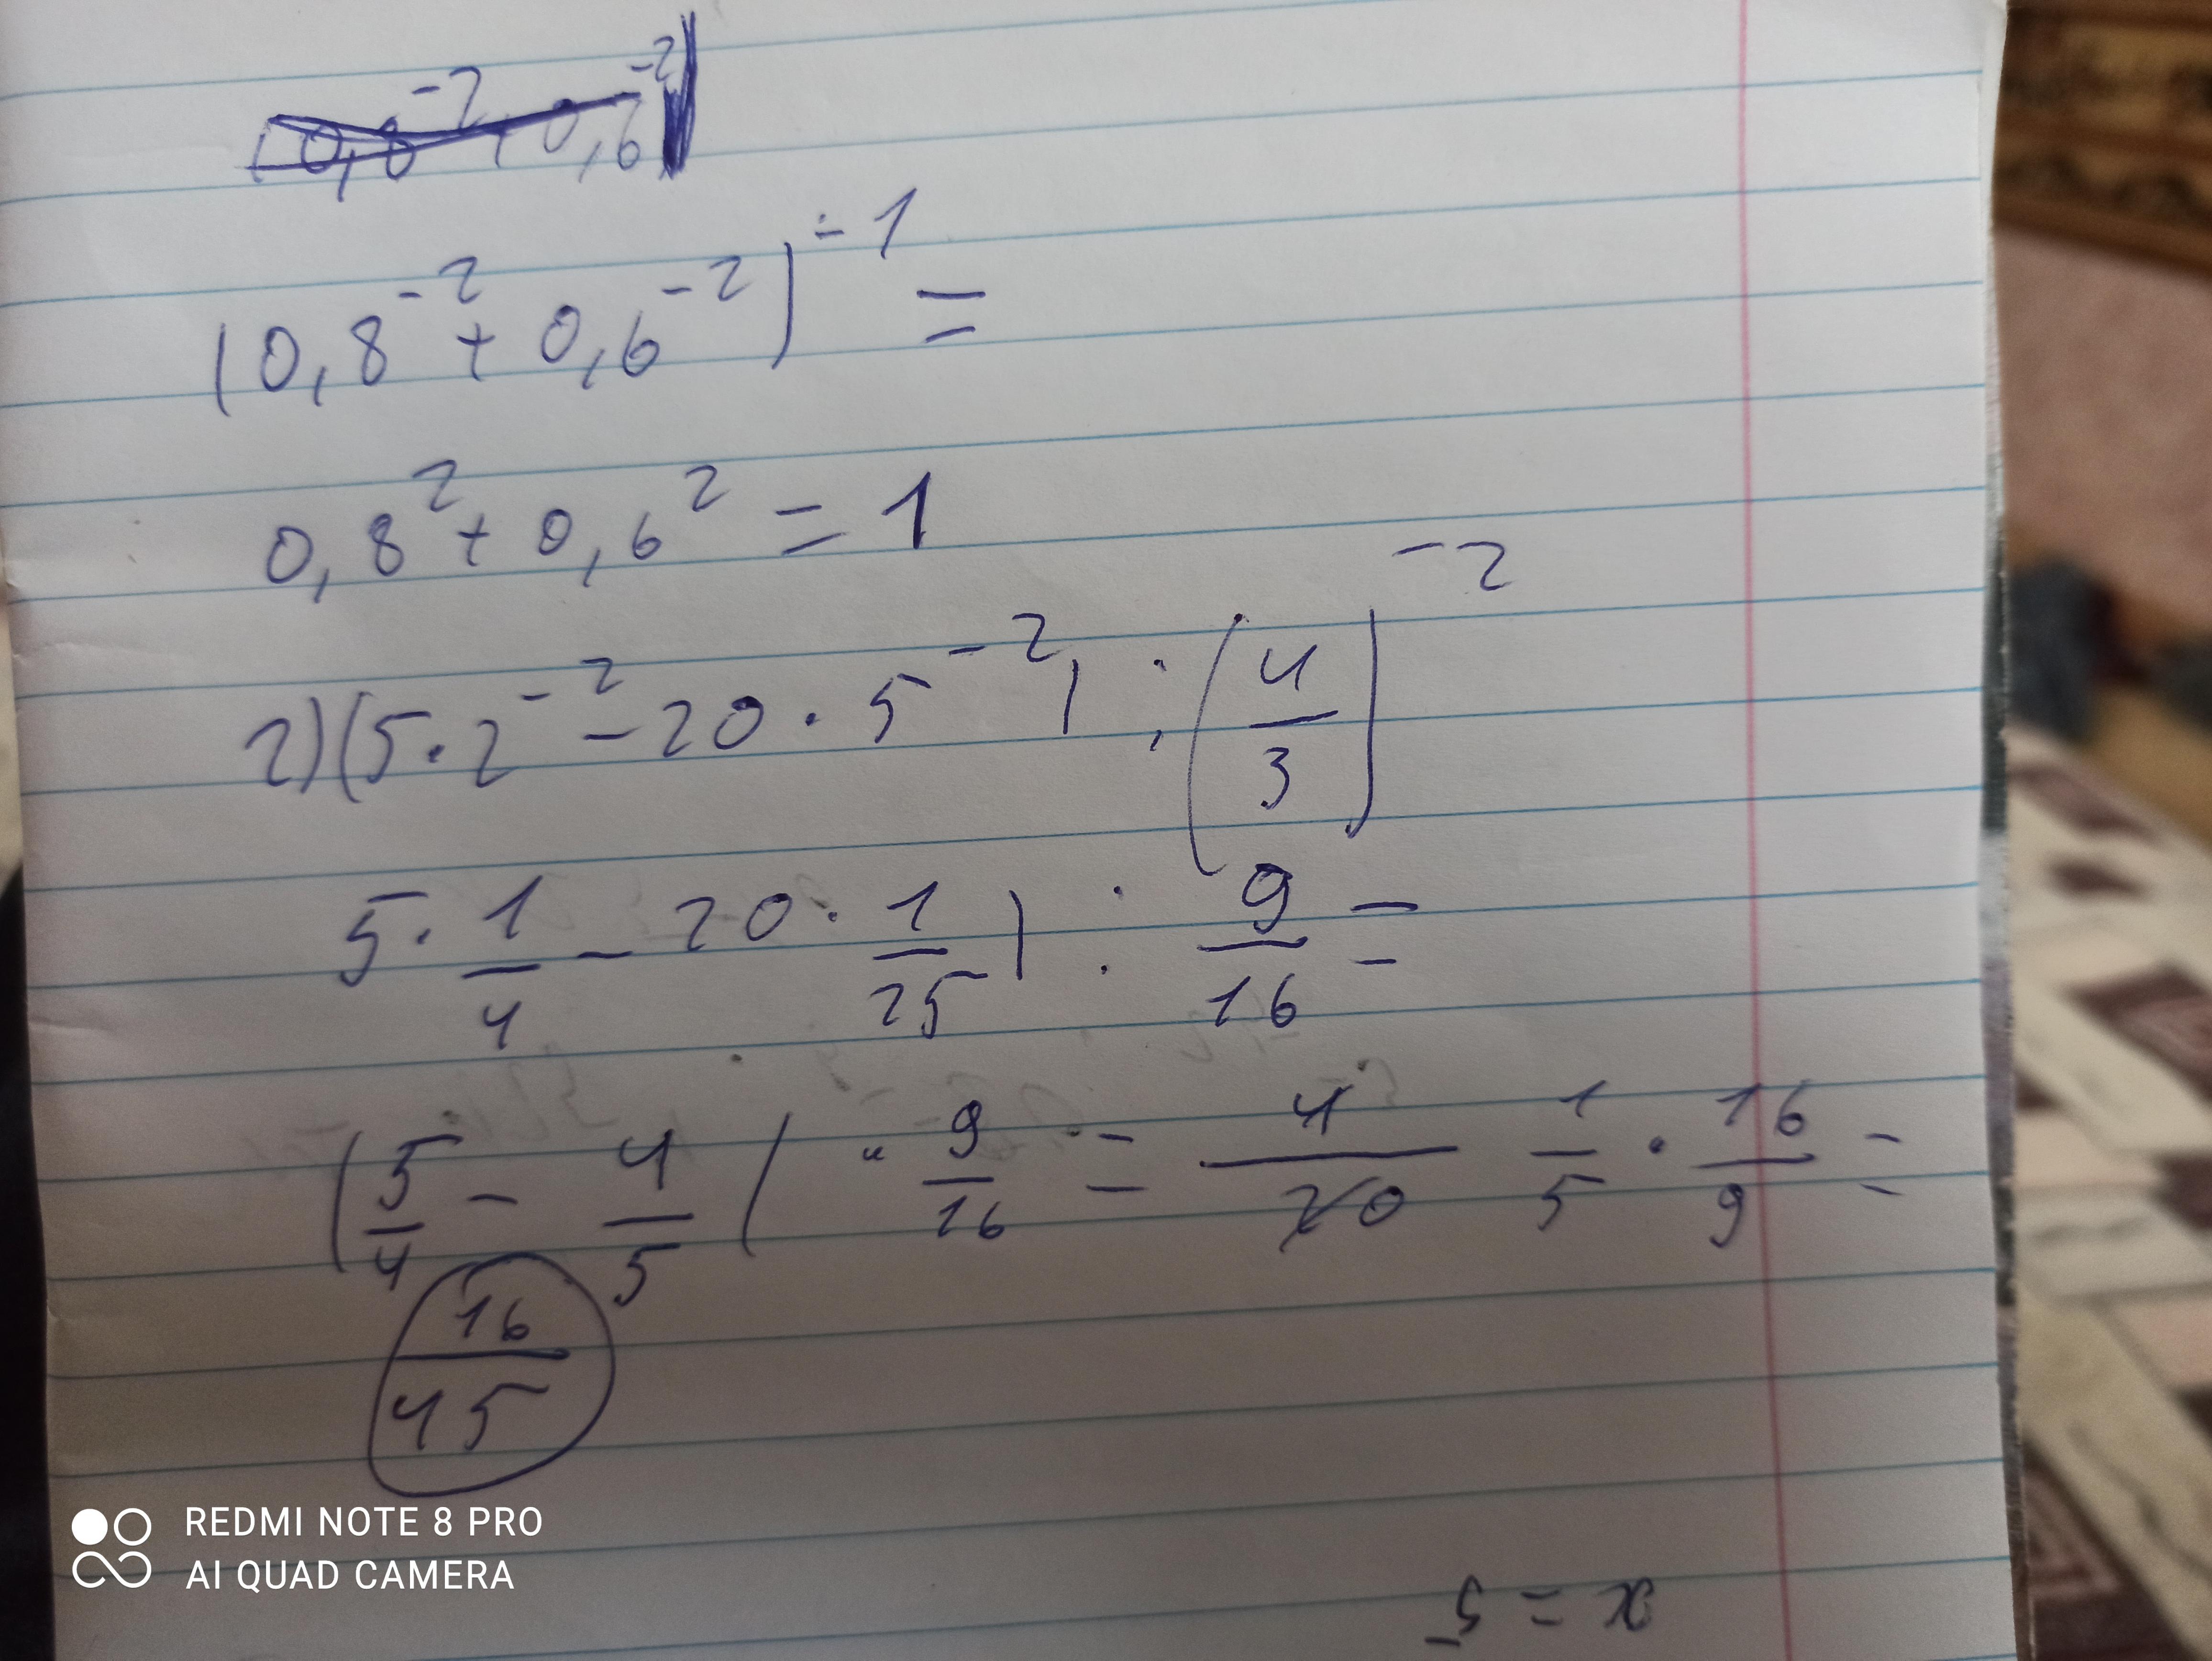 (0,8^-2 + 0,6^-2)
(0,8^-2 + 0,6^-2)^-1 =
0,8^2 + 0,6^2 = 1
2) (5·2^-2 - 20·5^-2) : (4/3)^-2
5·1/4 - 20·1/25) : 9/16 =
(5/4 - 4/5) : 9/16 = 4/20 1/5 · 16/9 =
16/45
REDMI NOTE 8 PRO
AI QUAD CAMERA
x = 5